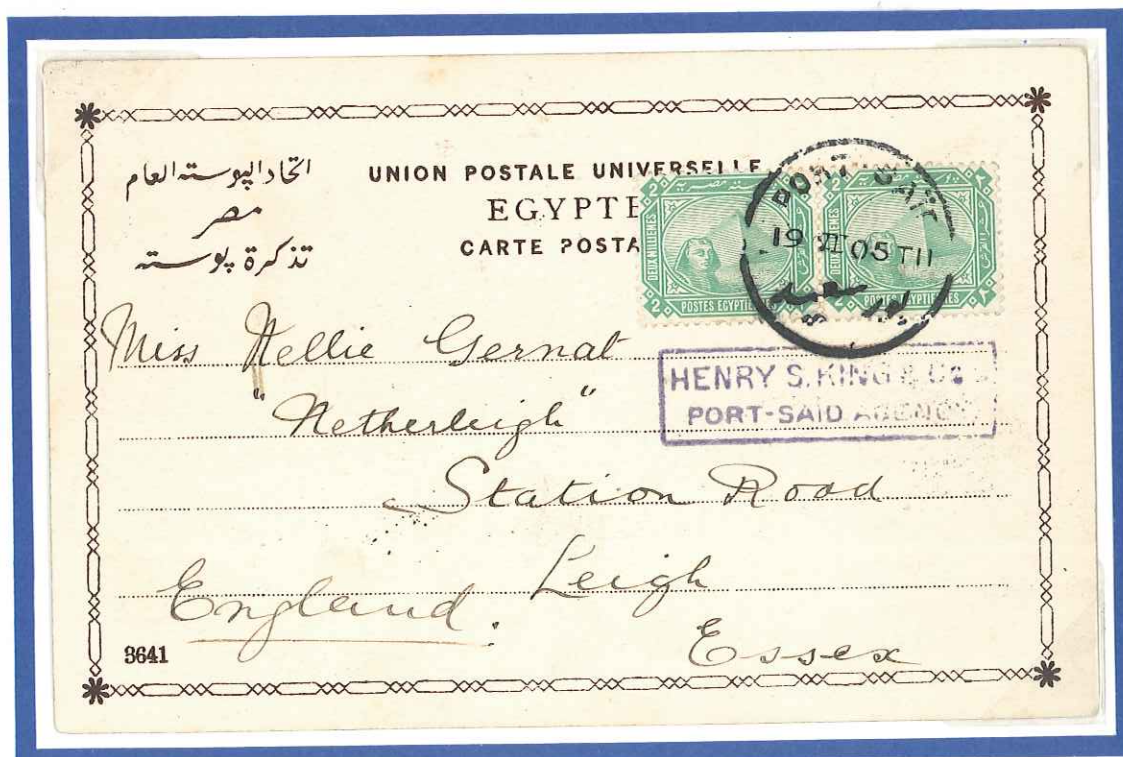 اتحاد البوسته العام
مصر
تذكرة بوسته
UNION POSTALE UNIVERSELLE
EGYPTE
CARTE POSTA
2 2
DEUX MILLIEMES
2 POSTES EGYPTIE
DEUX MILLIEMES
2 POSTES EGYPTIENNES
PORT SAID
19 VI 05 T11
HENRY S. KING & Co
PORT-SAID AGENCY
Miss Nellie Gernat
"Netherleigh"
Station Road
Leigh
England.
Essex
3641